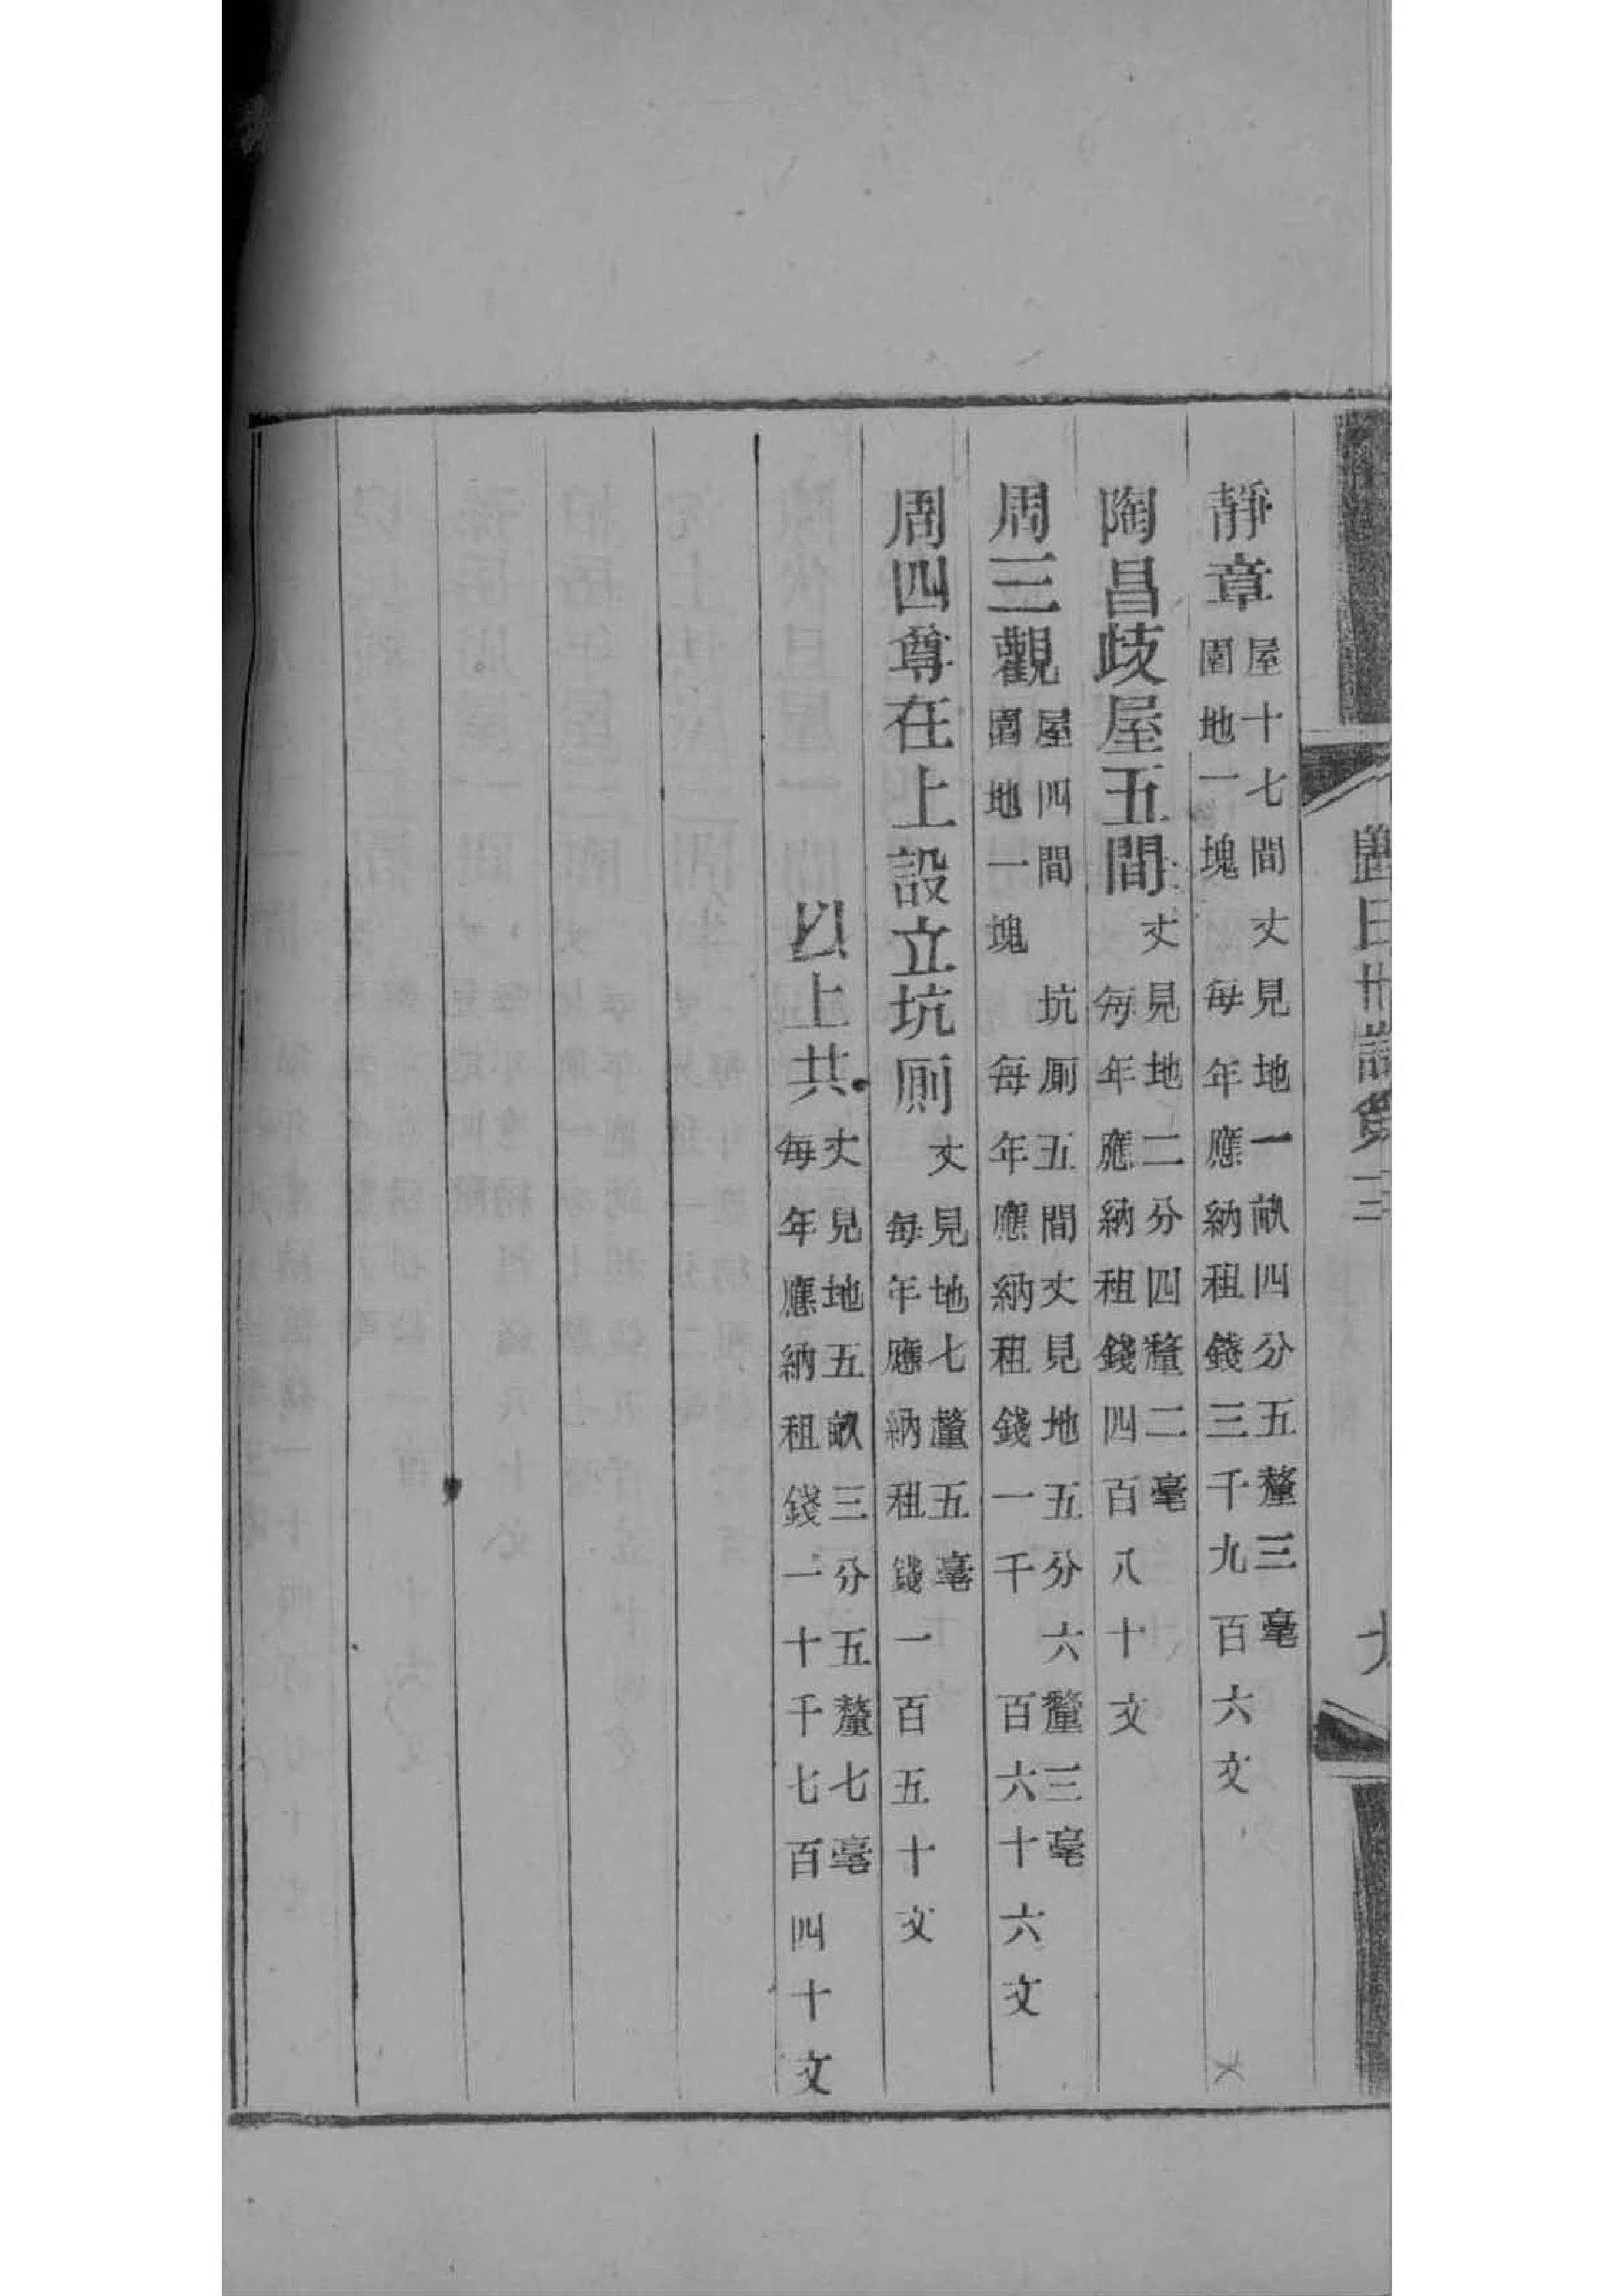 靜章屋十七間園地一塊丈見地一畝四分五釐三毫每年應納租錢三千九百六文
陶昌歧屋五間丈見地二分四釐二毫每年應納租錢四百八十文
周三觀屋四間園地一塊坑厠五間丈見地五分六釐三毫每年應納租錢一千六百六十六文
周四尊在上設立坑厠丈見地七釐五毫每年應納租錢一百五十文
以上共丈見地五畝三分五釐七毫每年應納租錢一十千七百四十文